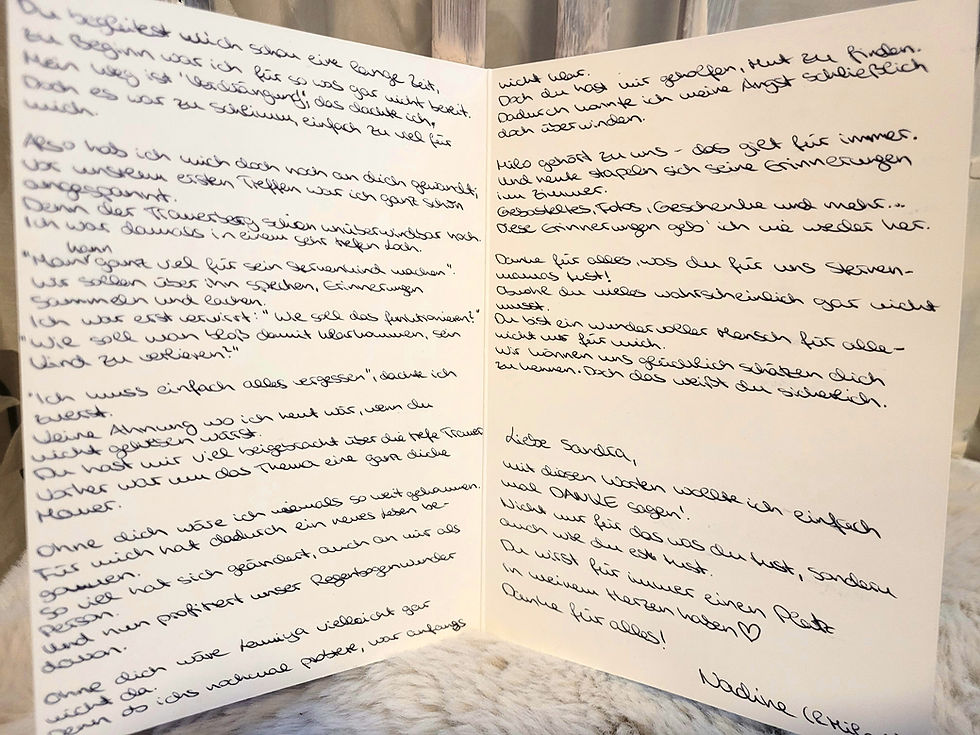 Du begleitest mich schon eine lange Zeit,
zu Beginn war ich für so was gar nicht bereit.
Mein Weg ist "Verdrängung", das dachte ich,
Doch es war zu schlimm, einfach zu viel für
mich.
Also hab ich mich doch noch an dich gewandt,
vor unserem ersten Treffen war ich ganz schön
angespannt.
Denn der Trauerberg schien unüberwindbar hoch.
Ich war damals in einem sehr tiefen Loch.
"Man kann ganz viel für sein Sternenkind machen".
Wir sollen über ihn sprechen, Erinnerungen
sammeln und lachen.
Ich war erst verwirrt: "Wie soll das funktionieren?"
"Wie soll man bloß damit klarkommen, sein
Kind zu verlieren?"
"Ich muss einfach alles vergessen", dachte ich
zuerst.
Keine Ahnung wo ich heut wär, wenn du
nicht gewesen wärst.
Du hast mir viel beigebracht über die tiefe Trauer
Vorher war um das Thema eine ganz dicke
Mauer.
Ohne dich wäre ich niemals so weit gekommen.
Für mich hat dadurch ein neues Leben be-
gonnen.
So viel hat sich geändert, auch an mir als
Person.
Und nun profitiert unser Regenbogenwunder
davon.
Ohne dich wäre vielleicht gar
nicht da.
Denn ob ichs nochmal probiere, war anfangs
nicht klar.
Doch du hast mir geholfen, Mut zu finden.
Dadurch konnte ich meine Angst schließlich
doch überwinden.
Milo gehört zu uns - das gilt für immer.
Und heute stapeln sich seine Erinnerungen
im Zimmer.
Gebasteltes, Fotos, Geschenke und mehr...
Diese Erinnerungen geb' ich nie wieder her.
Danke für alles, was du für uns Sternen-
mamas tust!
Obwohl du vieles wahrscheinlich gar nicht
musst.
Du bist ein wundervoller Mensch für alle-
nicht nur für mich.
Wir können uns glücklich schätzen dich
zu kennen. Doch das weißt du sicherlich.
Liebe Sandra,
mit diesen Worten wollte ich einfach
mal DANKE sagen!
Nicht nur für das was du tust, sondern
auch wie du es tust.
Du wirst für immer einen Platz
in meinem Herzen haben♡
Danke für alles!
Nadine